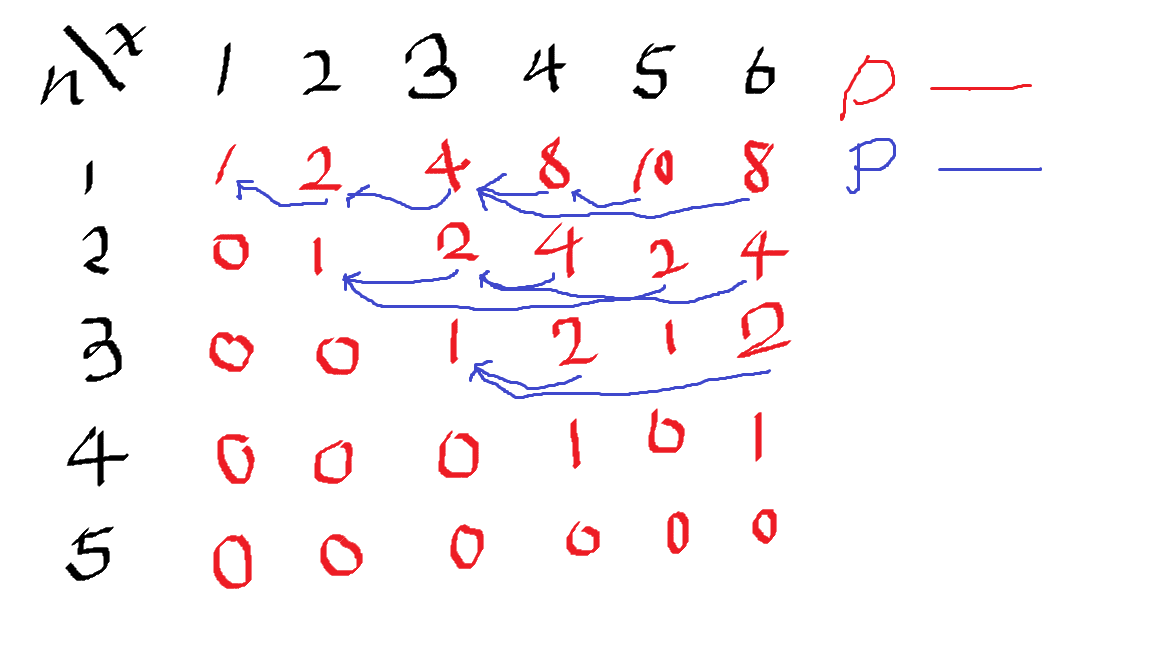 n\x 1 2 3 4 5 6 D —
1 1 2 4 8 10 8 P —
2 0 1 2 4 2 4
3 0 0 1 2 1 2
4 0 0 0 1 0 1
5 0 0 0 0 0 0